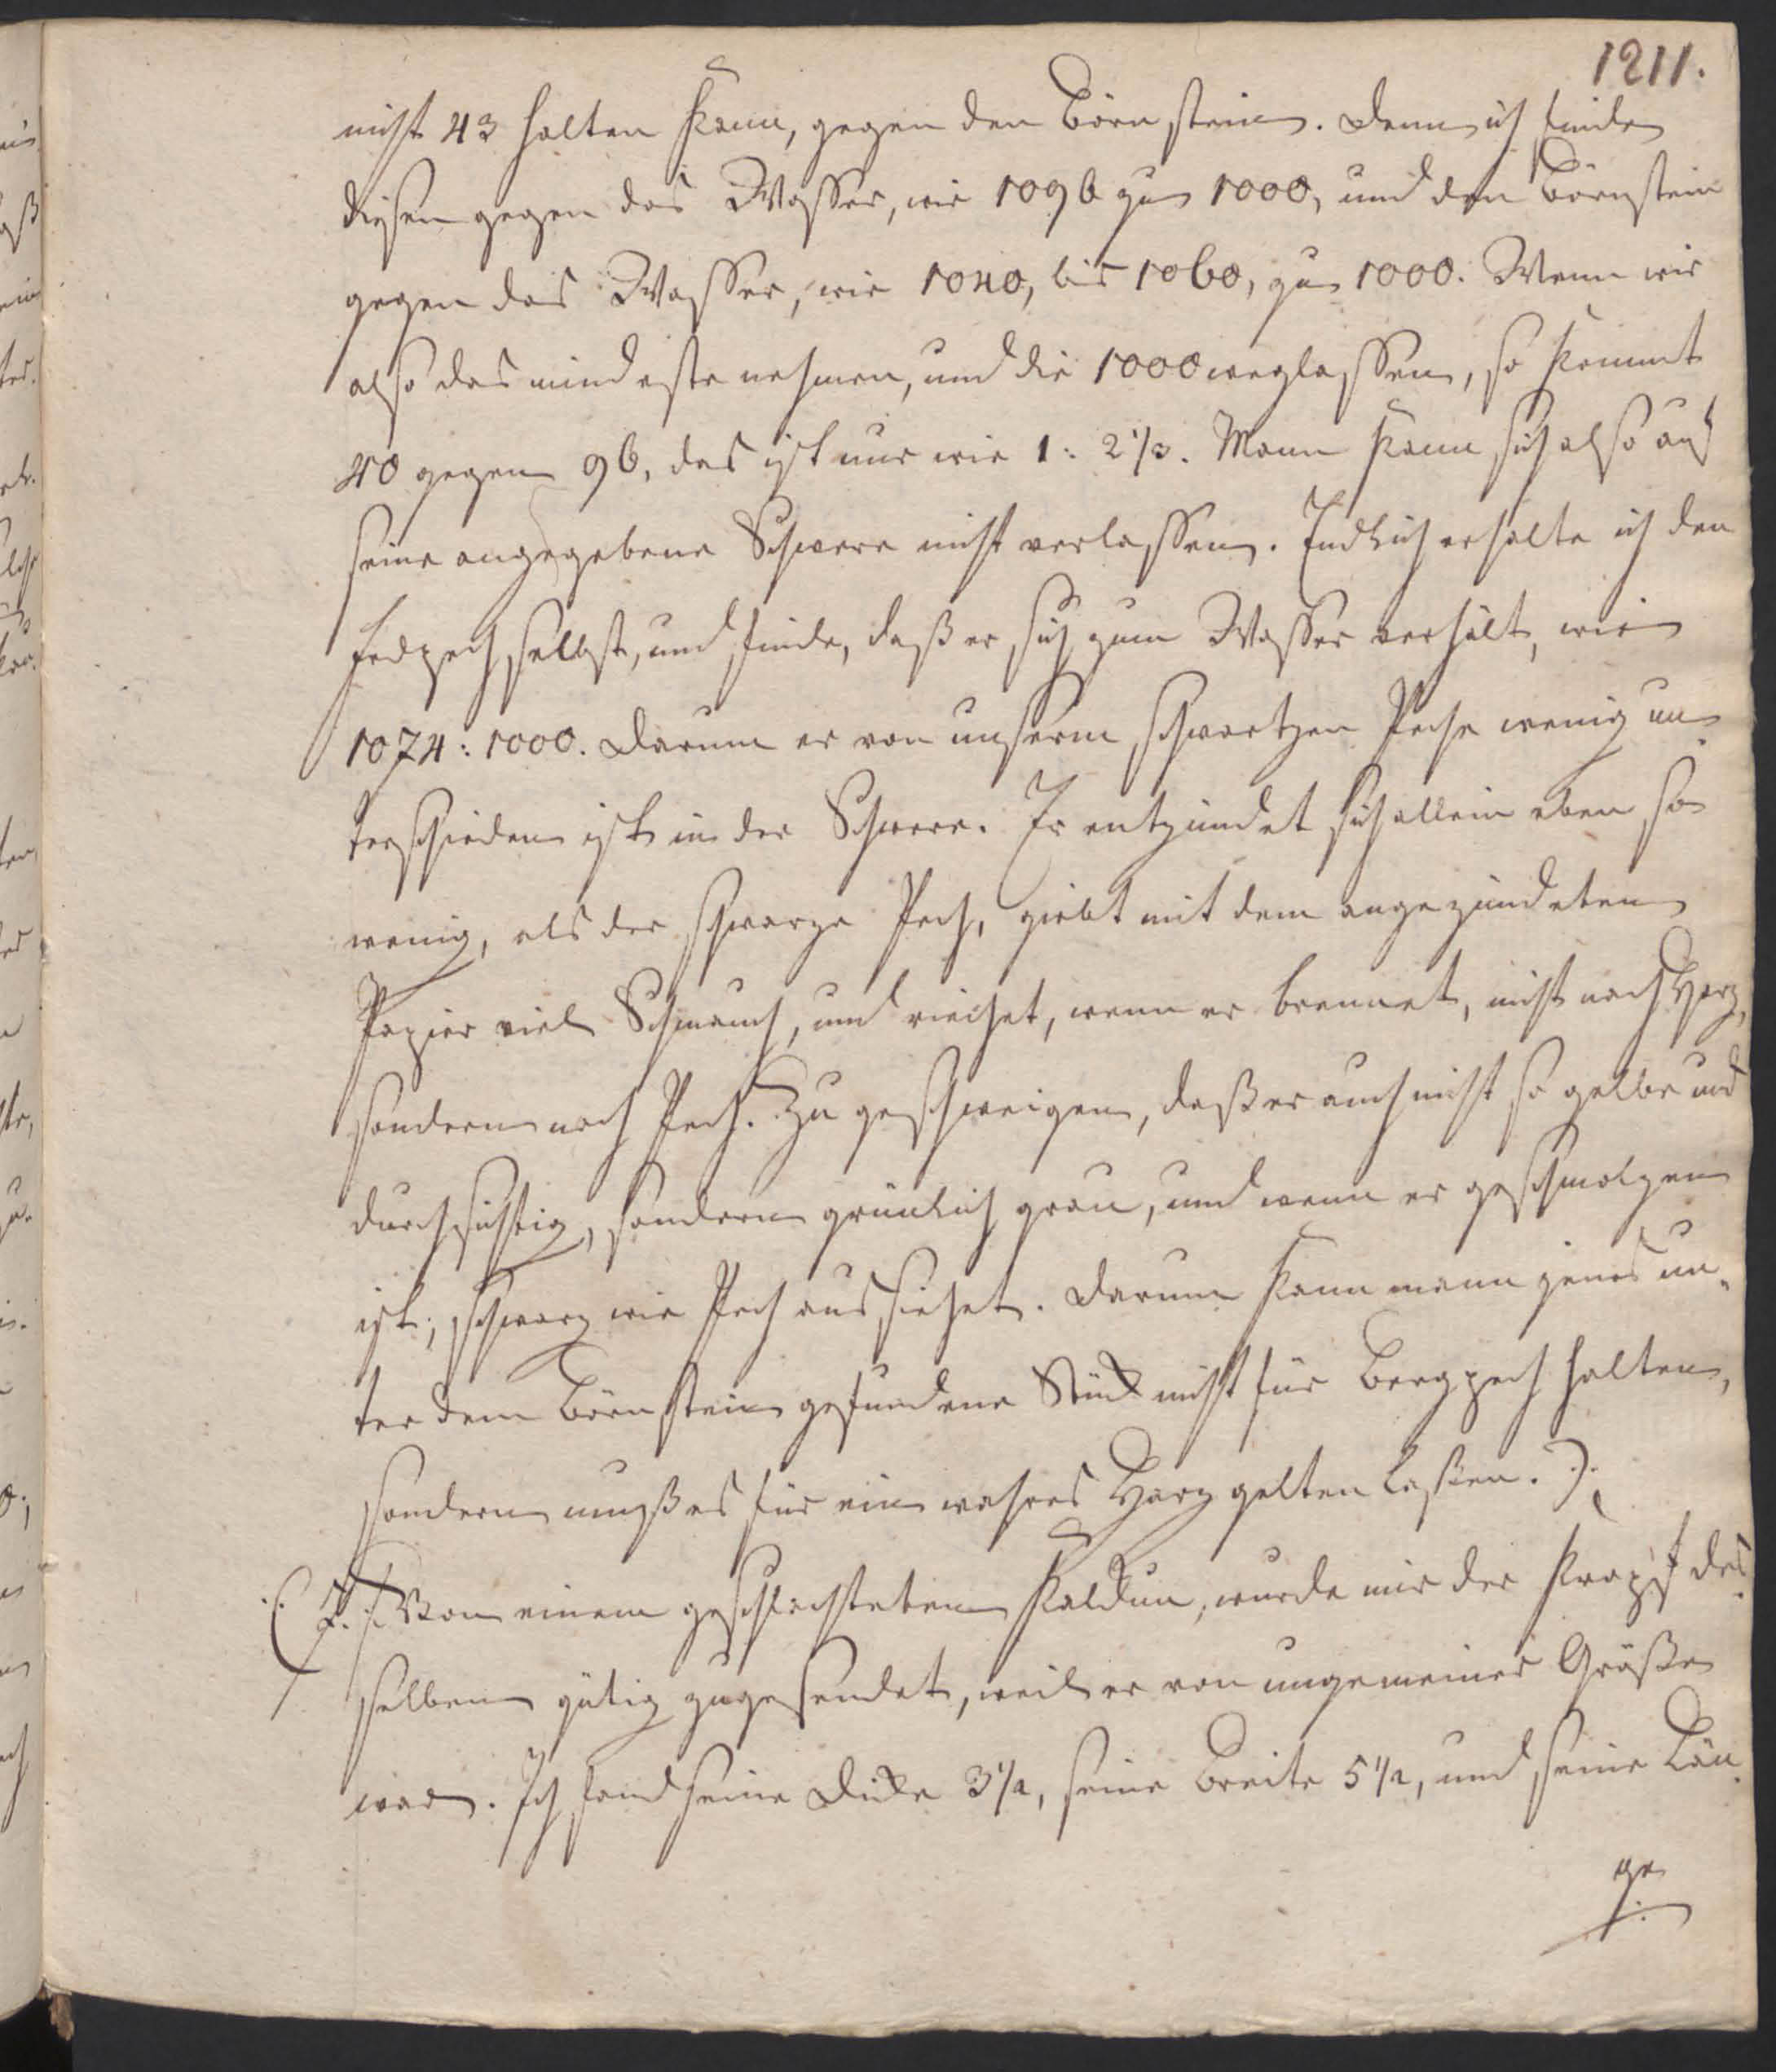 1211.
nicht 43 halten kann, gegen den Börnstein. Denn ich finde
diesen gegen das Wasser, wie 1096 zu 1000, und den Börnstein
gegen das Wasser, wie 1040, bis 1060, zu 1000. Wenn wir
also das mindeste nehmen, und die 1000 weglassen, so kommt
40 gegen 96, das ist nur wie 1: 2 1/3. Mann kann sich also auf
seine angegebene Schwere nicht verlassen. Endlich erhalte ich den
Erdpech selbst, und finde, daß er sich zum Wasser verhält, wie
1074: 1000. Darum er von unserm schwartzen Peche wenig un-
terschieden ist in der Schwere. Er entzündet sich allein eben so
wenig, als der schwarze Pech, giebt mit dem angezündeten
Papier viel Schmauch, und riechet, wenn er brennet, nicht nach Harz,
sondern nach Pech. Zu geschweigen, daß er auch nicht so gelbe und
durchsichtig, sondern grünlich grau, und wenn er geschmolzen
ist, schwarz wie Pech aussiehet. Darum kann mann jenes un-
ter dem Börnstein gefundene Stück nicht für Bergpech halten,
sondern muß es für ein wahres Harz gelten laßen.
7. Von einem geschlachteten Kaldun, wurde mir der Kropf des-
selben gütig zugesendet, weil er von ungemeiner Größe
war. Ich fand seine Dicke 3 1/2, seine Breite 5 1/2, und seine Län-
ge